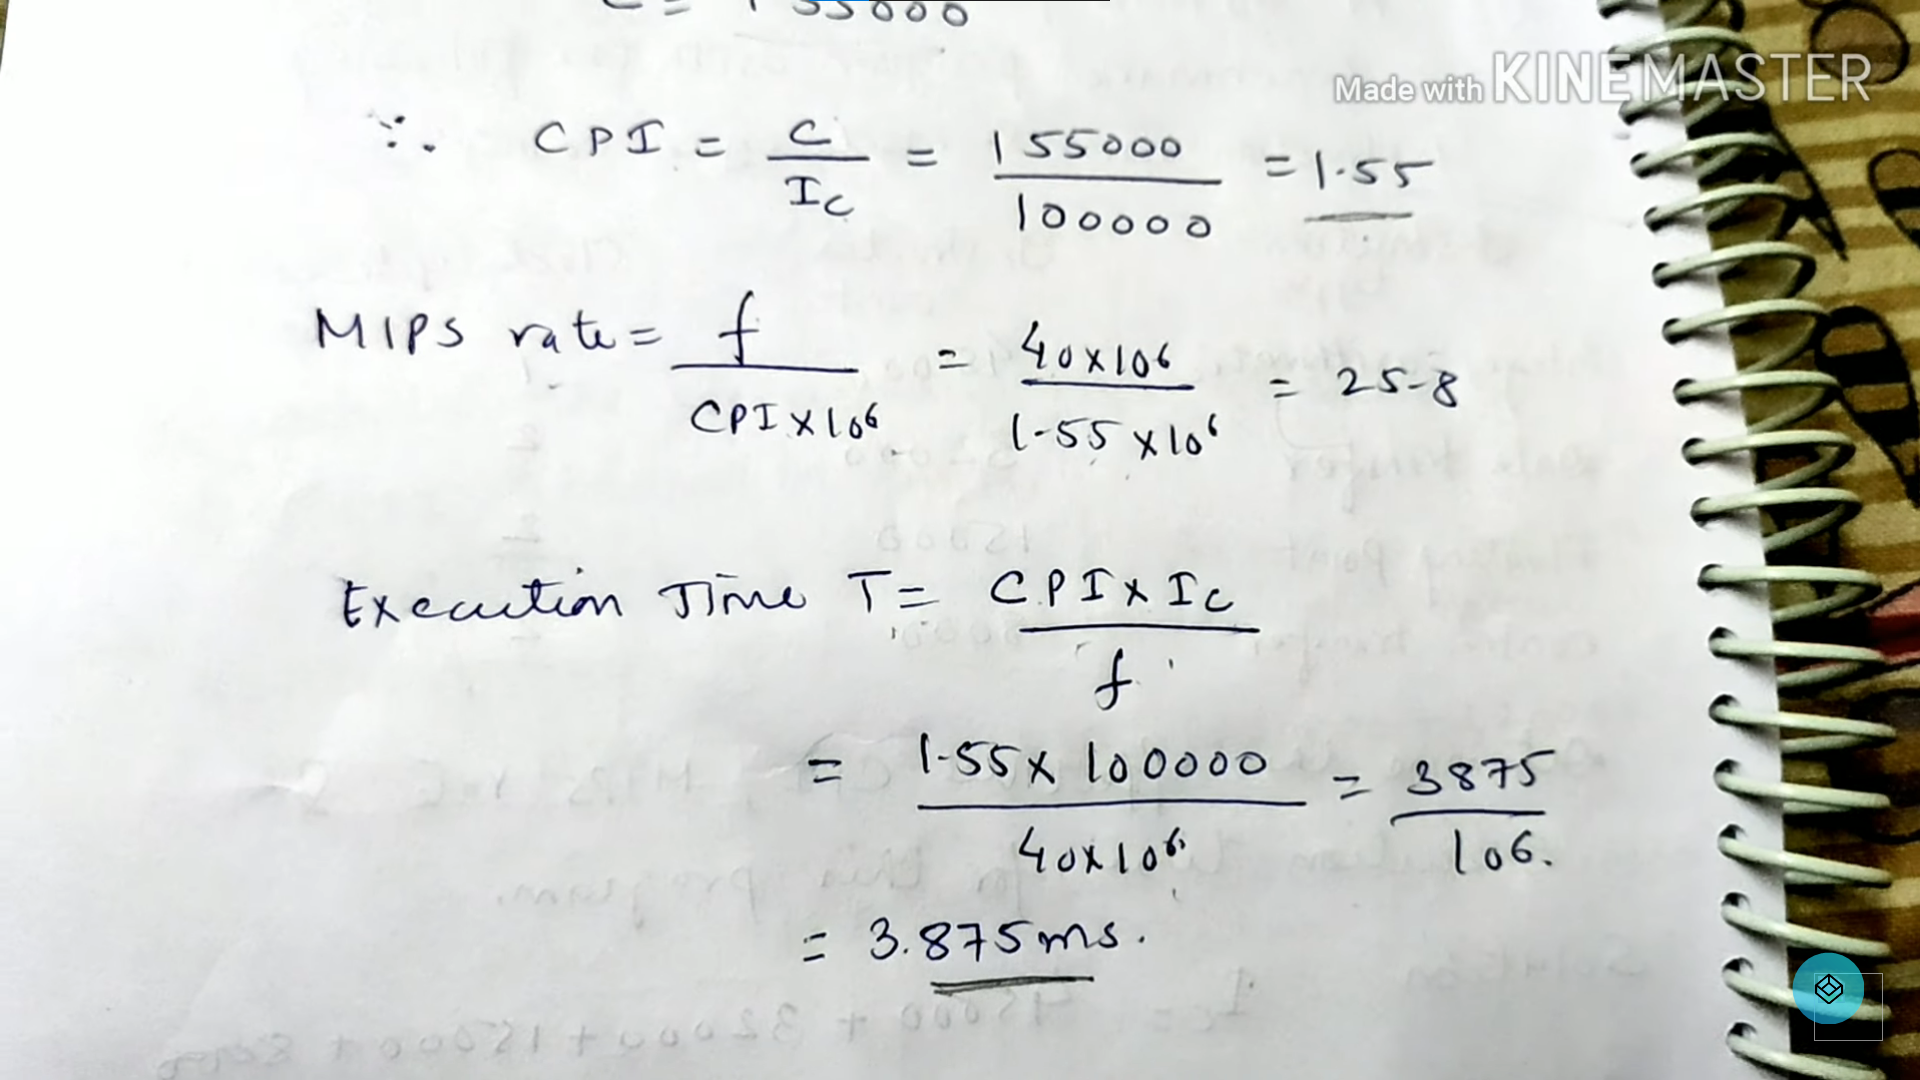 C = 155000
Made with KINEMASTER
∵ CPI = C/Ic = 155000/100000 = 1.55
MIPS rate = f/CPI×10⁶ = 40×10⁶/1.55×10⁶ = 25.8
Execution Time T = CPI×Ic/f
= 1.55×100000/40×10⁶ = 3875/10⁶.
= 3.875ms.